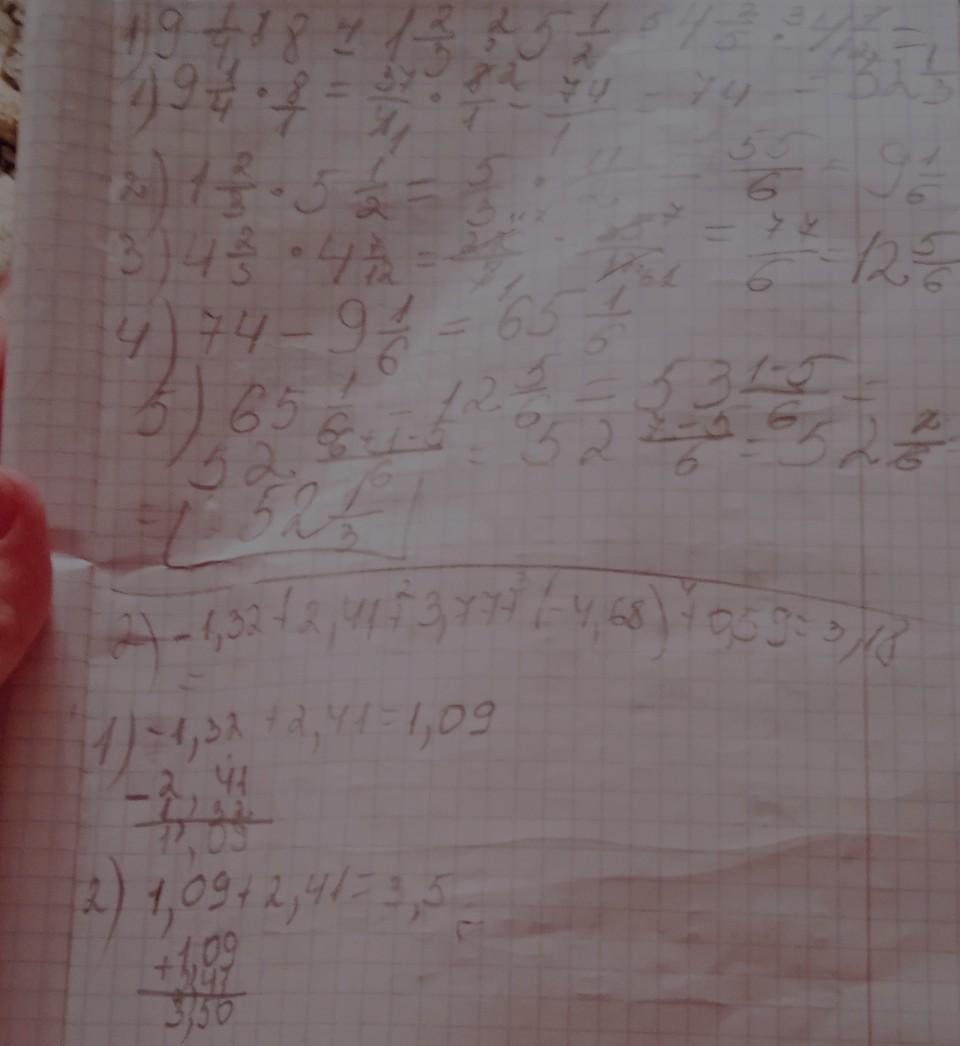 1) 9 1/4 · 8 - 1 2/3 · 5 1/2 - 4 2/3 · 4 7/12 =
1) 9 1/4 · 8/1 = 37/4 · 8/1 = 74/1 = 74 = 52 1/3
2) 1 2/3 · 5 1/2 = 5/3 · 11/2 = 55/6 = 9 1/6
3) 4 2/3 · 4 7/12 = = 77/6 = 12 5/6
4) 74 - 9 1/6 = 65 1/6
5) 65 1/6 - 12 5/6 = 53 1-5/6 =
52 6+1-5/6 = 52 7-5/6 = 52 2/6 =
= 52 1/3
2) -1,32 + 2,41 + 3,77 + (-4,68) + 0,59 = 3,18
=
1) -1,32 + 2,41 = 1,09
- 2,41
1,32
1,09
2) 1,09 + 2,41 = 3,5
+ 1,09
2,41
3,50